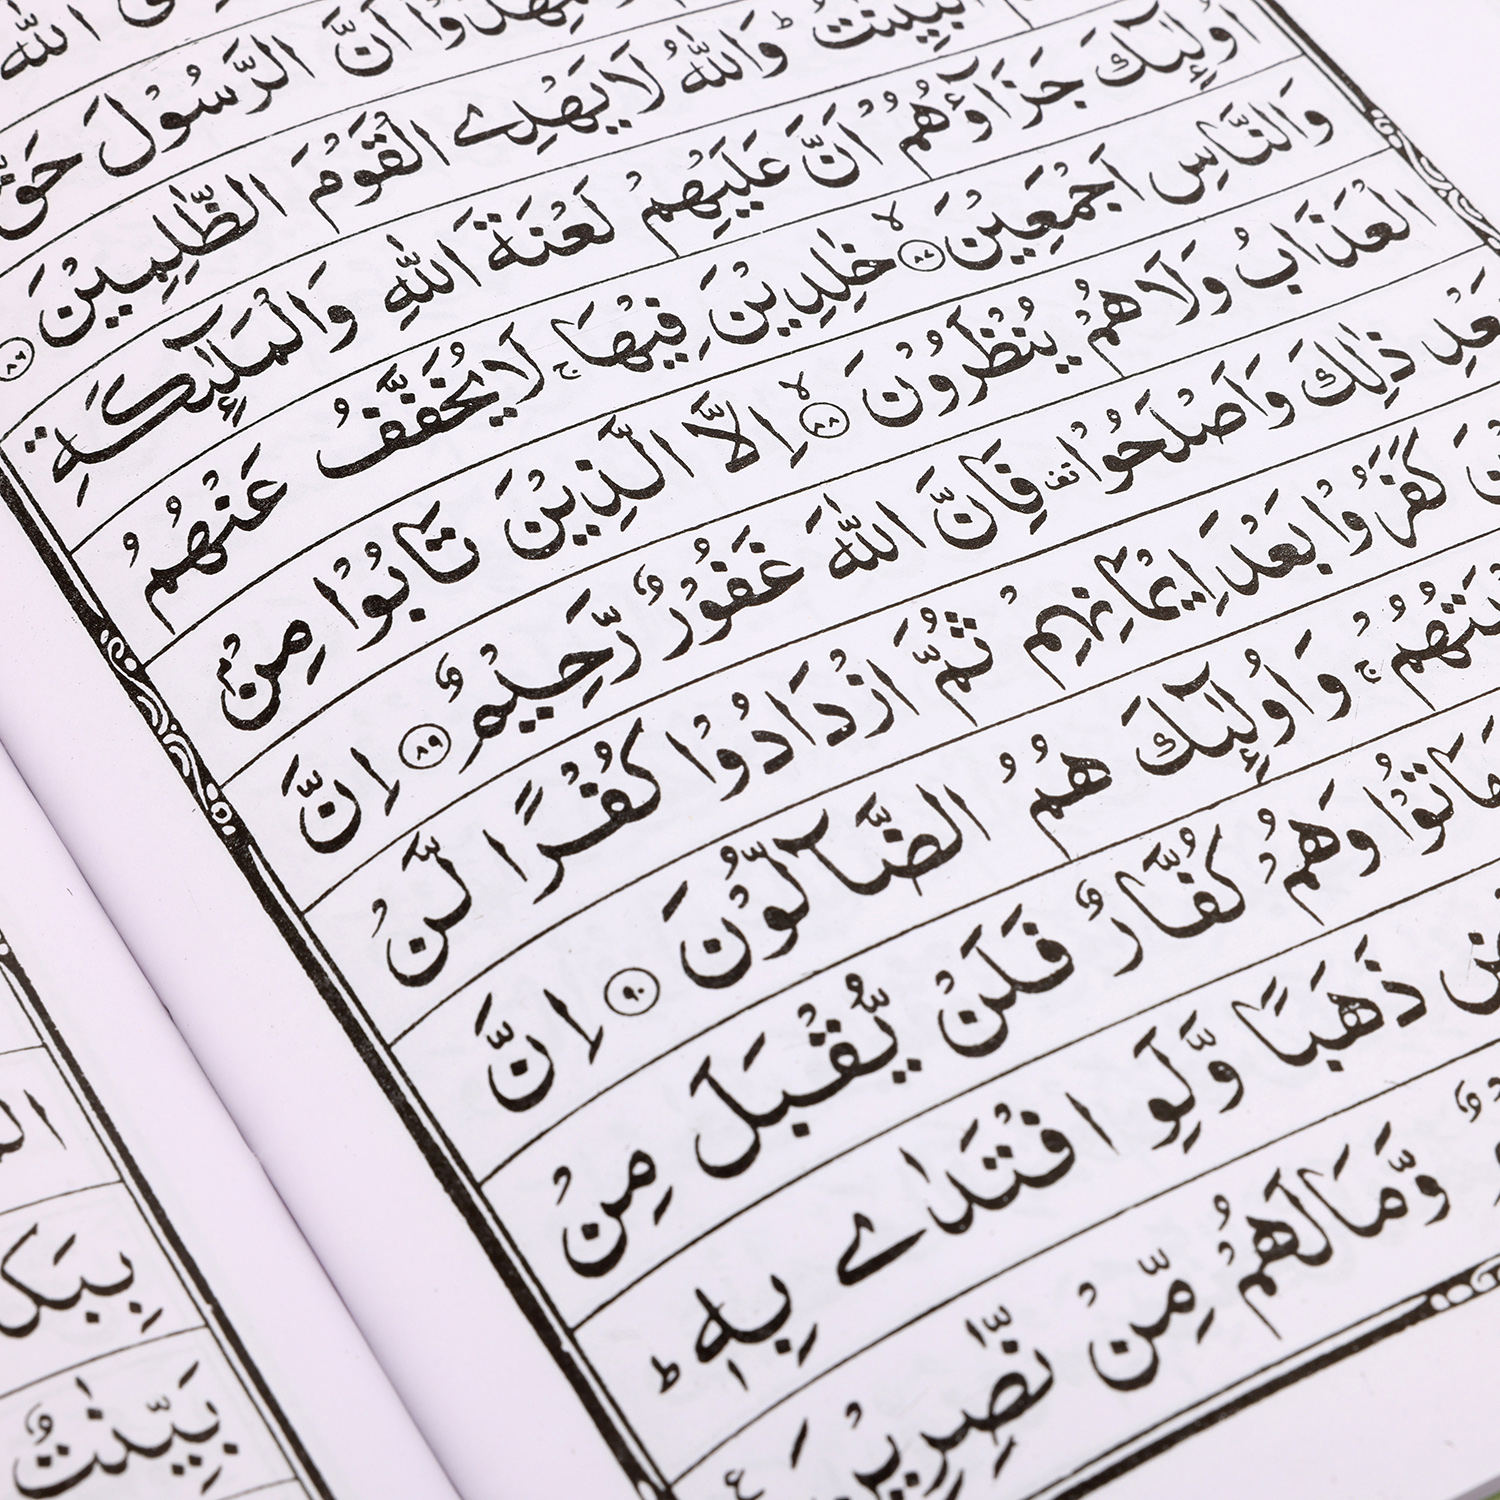 اَنَّ الرَّسُوْلَ حَقٌّ
وَاللّٰهُ لَا يَهْدِي الْقَوْمَ الظّٰلِمِيْنَ ﴿۸۶﴾
اُولٰٓئِكَ جَزَآؤُهُمْ اَنَّ عَلَيْهِمْ لَعْنَةَ اللّٰهِ وَالْمَلٰٓئِكَةِ
وَالنَّاسِ اَجْمَعِيْنَ ﴿۸۷﴾ۙ خٰلِدِيْنَ فِيْهَا ۚ لَا يُخَفَّفُ عَنْهُمُ
الْعَذَابُ وَلَا هُمْ يُنْظَرُوْنَ ﴿۸۸﴾ۙ اِلَّا الَّذِيْنَ تَابُوْا مِنْۢ
بَعْدِ ذٰلِكَ وَاَصْلَحُوْا قف فَاِنَّ اللّٰهَ غَفُوْرٌ رَّحِيْمٌ ﴿۸۹﴾ اِنَّ
كَفَرُوْا بَعْدَ اِيْمَانِهِمْ ثُمَّ ازْدَادُوْا كُفْرًا لَّنْ
وَاُولٰٓئِكَ هُمُ الضَّآلُّوْنَ ﴿۹۰﴾ اِنَّ
مَاتُوْا وَهُمْ كُفَّارٌ فَلَنْ يُّقْبَلَ مِنْ
ذَهَبًا وَّلَوِ افْتَدٰى بِهٖ ؕ
وَّمَا لَهُمْ مِّنْ نّٰصِرِيْنَ
بِبَكَّ
بَيِّنٰتٌ